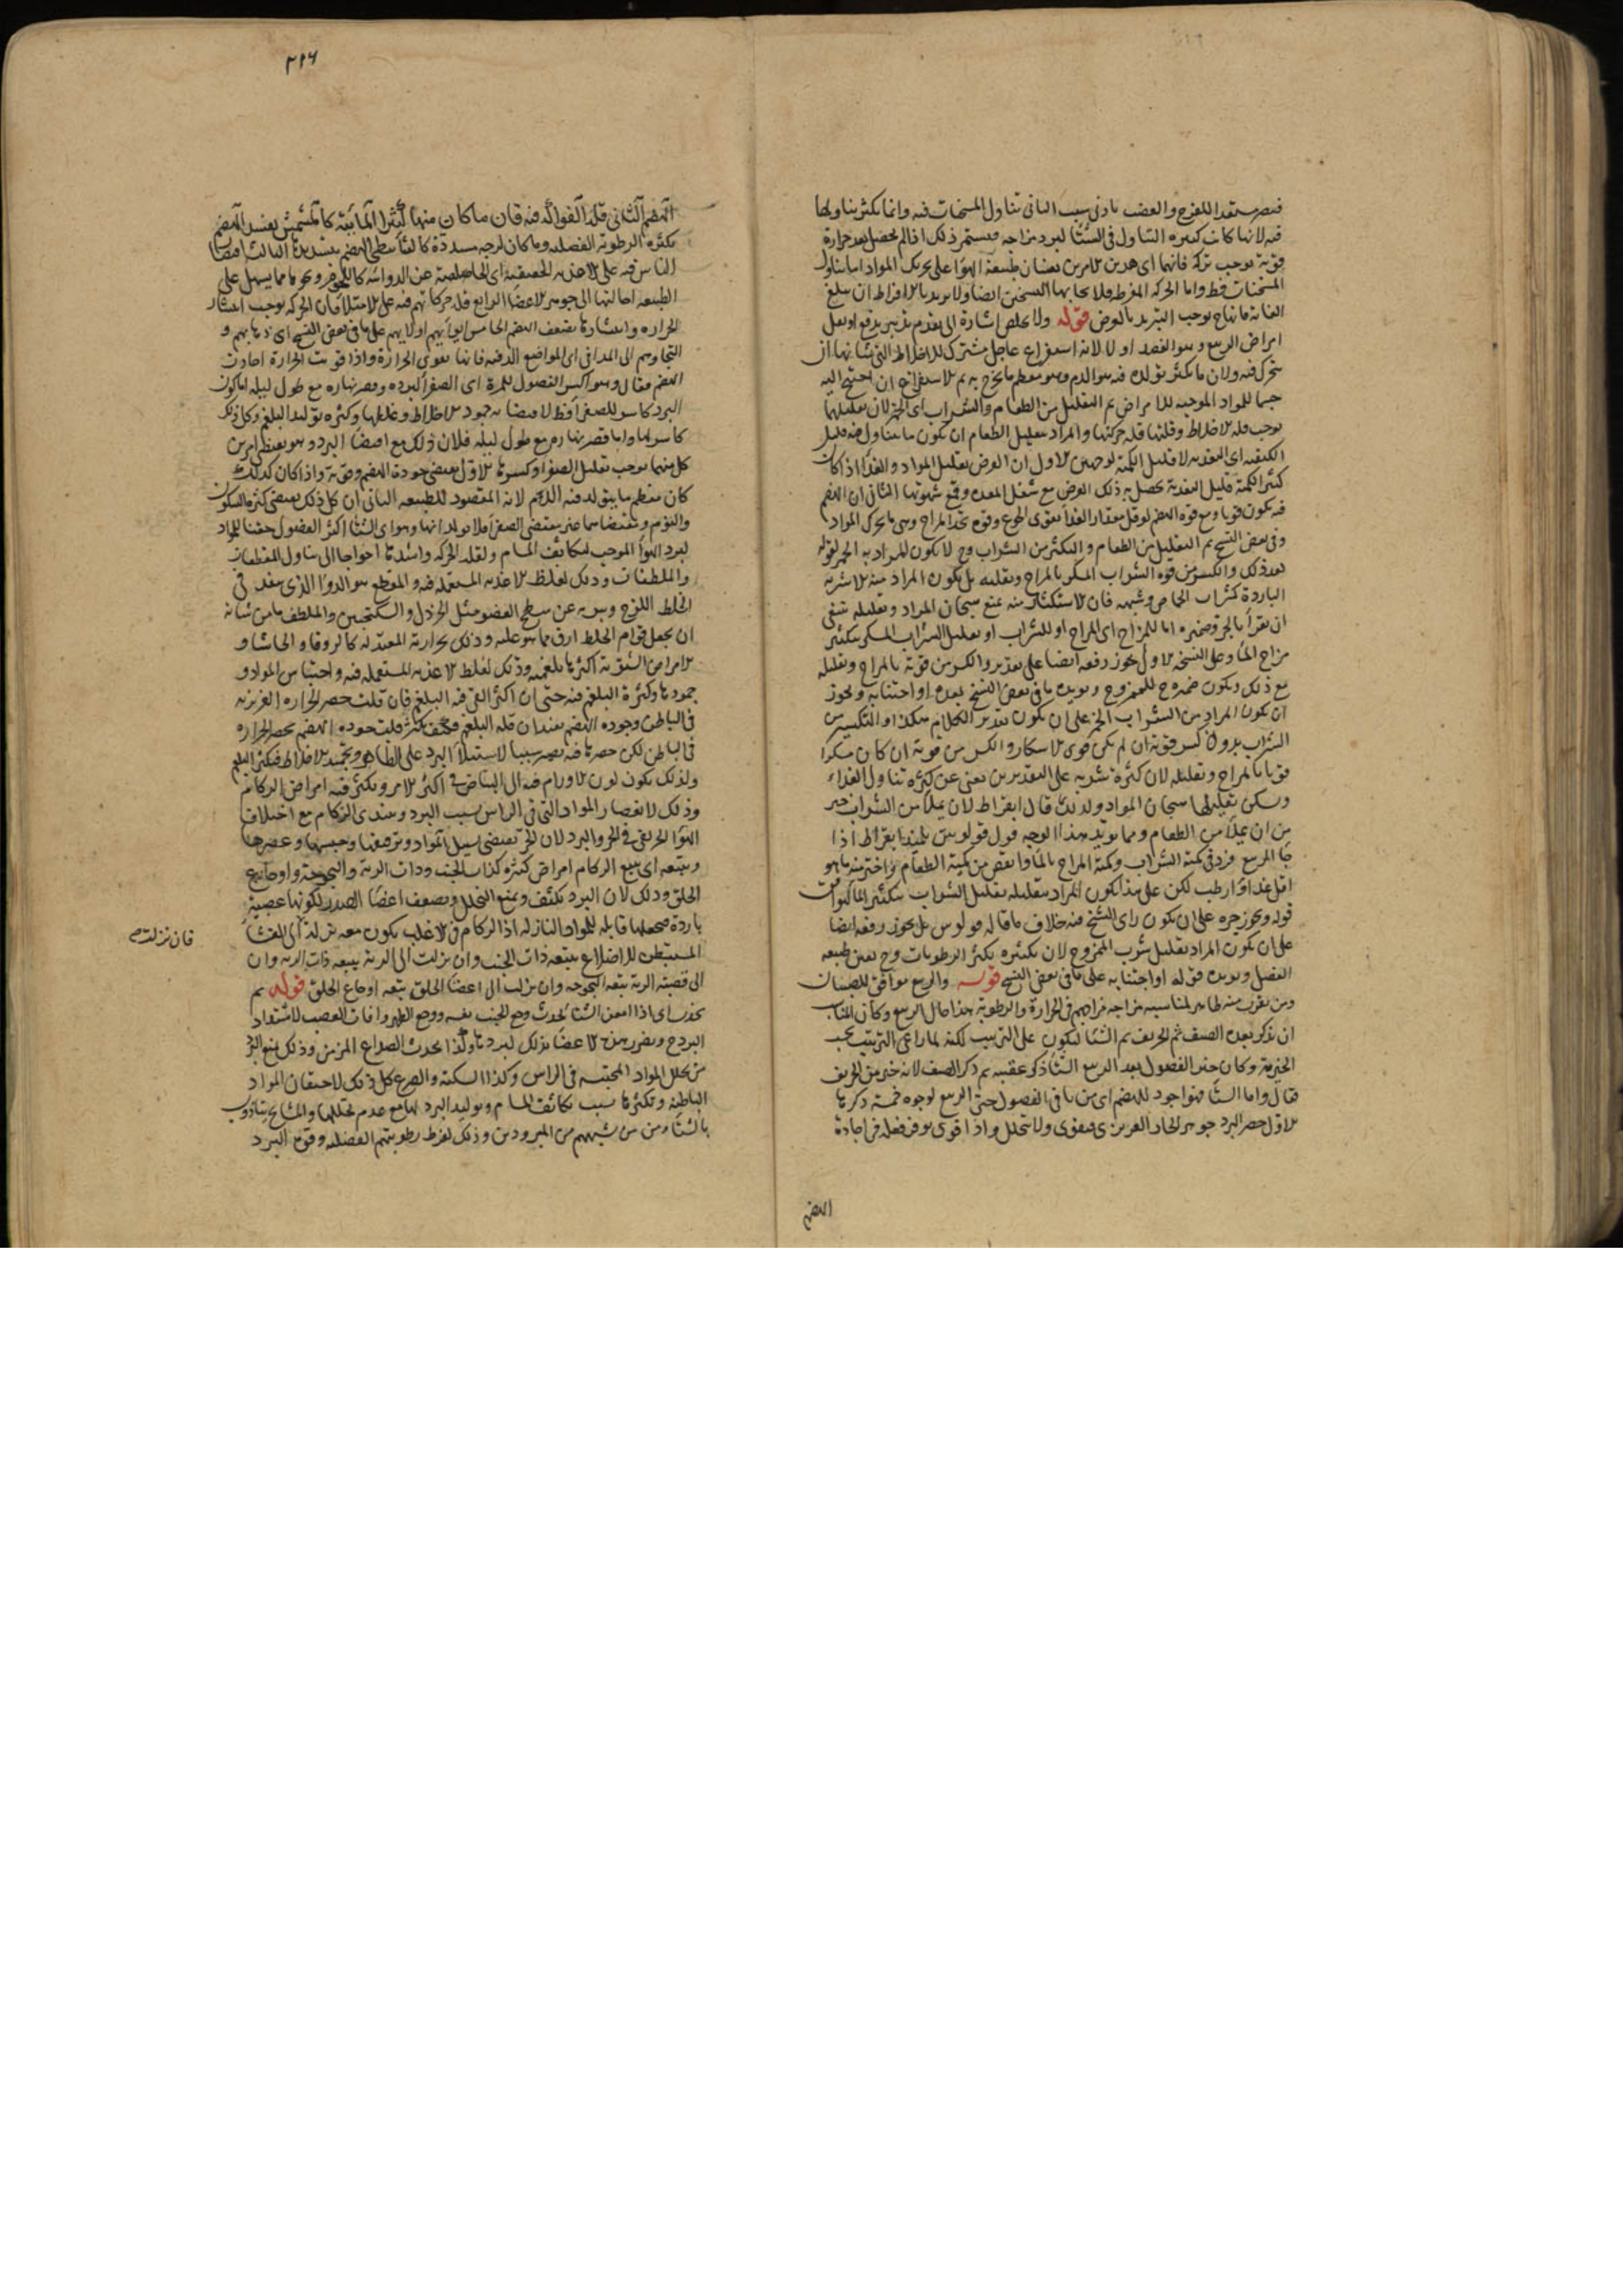 فيه لانها كانت كثيرة التناول فى الشتا لبرد مزاجه فيستمر ذلك اذا لم يحصل بعد حرارة
قوية توجب تركه فانهما اى هذين الامرين يعينان طبيعة الهوا على تحريك المواد اما تناول
المسخنات فقط واما الحركة المفرطة فلا يحابها التسخين ايضا ولا يريد بالافراط ان يبلغ
توجب التبريد بالعرض قوله ولا يخلص اشارة الى تقدم تدبير يدفع او يقل
امراض الربيع وهو الفصد اولا لانه استفراغ عاجل مشترك للاخلاط التى شانها ان
تتحرك فيه ولان ما يكثر تولده فيه هو الدم وهو معظم ما يخرج به ثم الاستفراغ ان احتيج اليه
للمواد الموجبة للامراض ثم التقليل من الطعام والشراب اى الخمر لان تقليلهما
يوجب قلة الاخلاط وقلتها قلة حركتها والمراد بتقليل الطعام ان يكون ما يتناول منه قليل
الكيفية اى التغذية لا قليل الكمية لوجهين الاول ان الغرض تقليل المواد والغذا اذا كان
كثير الكمية قليل التغذية يحصل به ذلك الغرض مع شغل المعدة وقمع شهوتها الثانى ان الهضم
فيه يكون قويا ومع قوة الهضم لو قل مقدار الغذا يقوى الجوع وقوته تحد المزاج وهى مما يحرك المواد
وفى بعض النسخ ثم التقليل من الطعام والتكثر من الشراب وح لا يكون المراد به الخمر لقوله
بعد ذلك والكسر من قوة الشراب المسكر بالمزاج وتقليله بل يكون المراد منه الاشربة
الباردة كشراب الحماض وشبهه فان الاستكثار منه يمنع هيجان المواد
ان يقرا بالجر وضميره اما للمزاج اى المزاج او للشراب او تقليل الشراب المسكر بتكثير
مزاج الما وعلى النسخة الاولى يجوز رفعه ايضا على تقدير والكسر من قوته بالمزاج وتقليله
مع ذلك ويكون ضميره ح للممزوج ويؤيده ما فى بعض النسخ بعده او اجتنابه ويجوز
ان يكون المراد من الشراب الخمر على ان يكون تقدير الكلام هكذا او التكثير من
الشراب بدون كسر قوته ان لم يكن قوى الاسكار والكسر من قوته ان كان مسكرا
قويا بالمزاج وتقليله لان كثرة شربه على التقديرين تغنى عن كثرة تناول الغذاء
ويسكن بتقليلها هيجان المواد ولذلك قال ابقراط لان يملا من الشراب خير
من ان يملا من الطعام ومما يؤيد هذا الوجه قول فولوبس تلميذ ابقراط اذا
جا الربيع فزد فى كمية الشراب وكمية المزاج بالما وانقص من كمية الطعام واختر منه ما هو
اقل غذا وارطب لكن على هذا يكون المراد بتقليله تقليل الشراب بتكثير الما
قوله ويجوز جره على ان يكون راى الشيخ فيه خلاف ما قاله فولوبس بل يجوز رفعه ايضا
على ان يكون المراد تقليل شرب الممزوج لان تكثيره يكثر الرطوبات وح يعين طبيعه
الفصل ويؤيده قوله او اجتنابه على ما فى بعض النسخ قوله والربيع موافق للصبيان
ومن يقرب منهم لمناسبه مزاجه مزاجهم فى الحرارة والرطوبة هذا حال الربيع وكان المناسب
ان يذكر بعده الصيف ثم الخريف ثم الشتا ليكون على الترتيب لكنه لما راعى الترتيب بحسب
الخيرية وكان خير الفصول بعد الربيع الشتا ذكره عقيبه ثم ذكر الصيف لانه خير من الخريف
فقال واما الشتا فهو اجود للهضم اى من باقى الفصول حتى الربيع لوجوه خمسة ذكرها
الاول حصر البرد جوهر الحار الغريزى فيقوى ولا يتحلل واذا قوى توفر فعله فى اجادة
الهضم
٢١٦
الهضم الثانى قلة الفواكه فيه فان ما كان منها كثير المائية كالمشمش يفسد الهضم
بكثرة الرطوبة الفضلية وما كان لزجه مسددة كالقثا بطى الهضم الثالث اقتصار
الناس فيه على الاغذية الحقيقية اى الخالصة عن الدوائية ونحوها مما يسهل على
الطبيعة احالتها الى جوهر الاعضا الرابع قلة حركاتهم فيه على الامتلا فان الحركة توجب انتشار
الحرارة وانتشارها يضعف الهضم الخامس ايوائهم على ما فى بعض النسخ اى ذهابهم و
التجاوهم الى المدافى اى المواضع الدفية فانها تقوى الحرارة واذا قويت الحرارة اجادت
الهضم فقال وهو اكسر الفصول للمرة اى الصفرا لبرده وقصر نهاره مع طول ليله اما كون
البرد كاسرا للصفرا فظ لاقتضائه جمود الاخلاط وغلظها وكثرة توليد البلغم وكل ذلك
كاسر لها واما قصر نهارهم مع طول ليله فلان ذلك مع اقتضا البرد وهو
كل منهما توجب تقليل الصفرا وكسرها الاول يقتضى جودة الهضم وقوته واذا كان كذلك
كان معظم ما يتولد فيه الدم لانه المقصود للطبيعة الثانى ان كل ذلك يقتضى كثرة السكون
والنوم ومقتضاهما غير مقتضى الصفرا فلا يولدانها وهو اى الشتا اكثر الفصول حقنا للمواد
لبرد الهوا الموجب لتكاثف المسام ولقلة الحركة واشدها احواجا الى تناول المقطعات
والملطفات وذلك لغلظ الاغذية المستعملة فيه والمقطع هو الدوا الذى ينفذ فى
الخلط اللزج ويبريه عن سطح العضو مثل الخردل والسكنجبين والملطف ما من شانه
ان يجعل قوام الخلط ارق مما هو عليه وذلك بحرارته المعتدلة كالزوفا والحاشا و
الامراض الشتوية اكثرها بلغمية وذلك لغلظ الاغذية المستعملة فيه واحتباس المواد و
جمودها وكثرة البلغم فيه حتى ان اكثر القى فيه البلغم فان قلت حصر الحرارة الغريزية
فى الباطن وجودة الهضم يفيدان قلة البلغم فكيف يكثر قلت جودة الهضم بحصر الحرارة
فى الباطن لكن حصرها فيه يصير سببا لاستيلا البرد على الظاهر وتجميد الاخلاط فيكثر البلغم
ولذلك يكون لون الاورام فيه الى البياض فى اكثر الامر ويكثر فيه امراض الزكام
وذلك لانعصار المواد التى فى الراس بسبب البرد ويبتدى الزكام مع اختلاف
الهوا الخريفى فى الحر والبرد لان الحر يقتضى تسييل المواد وترقيقها وعصرها
ويتبعه اى يتبع الزكام امراض كثيرة كذات الجنب وذات الرية والبحوحة واوجاع
الحلق وذلك لان البرد يكثف ويمنع التحلل ويضعف اعضا الصدر لكونها عصبية
باردة فيجعلها قابلة للمواد النازلة اذ الزكام فى الاغلب يكون معه نزلة الى الغشا
فان نزلت
المستبطن للاضلاع يتبعه ذات الجنب وان نزلت الى الرية يتبعه ذات الرية وان
الى قصبة الرية يتبعه البحوحة وان نزلت الى اعضا الحلق يتبعه اوجاع الحلق قوله ثم
يحدث اى اذا امعن الشتا يحدث وجع الجنب نفسه ووجع الظهر وافات العصب لاشتداد
البرد ح وتضرر هذه الاعضا بذلك لبردها ولذا يحدث الصداع المزمن وذلك لمنع البرد
من تحلل المواد المحتبسة فى الراس وكذا السكتة والصرع كل ذلك لاحتقان المواد
الباطنة وتكثرها بسبب تكاثف المسام وتوليد البرد لها مع عدم تحللها والمشايخ يتاذون
بالشتا ومن يشبههم من المبرودين وذلك لفرط رطوبتهم الفضلية وقوة البرد